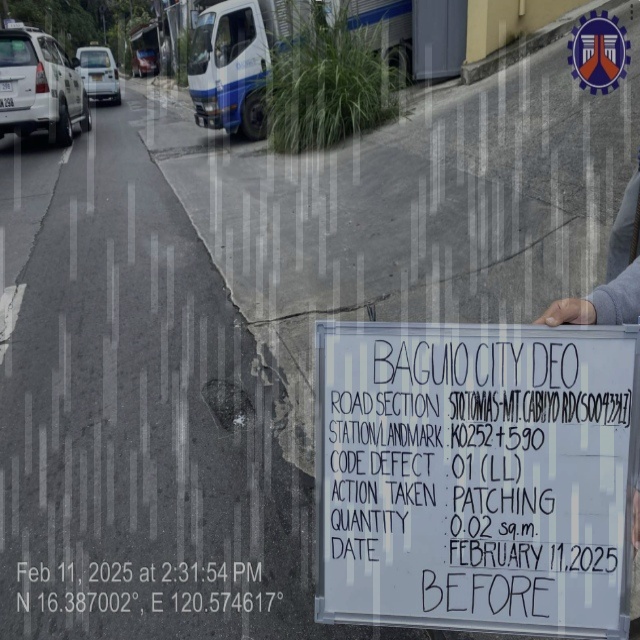 BAGUIO CITY DEO
ROAD SECTION : STO TOMAS-MT. CABUYO RD
STATION/LANDMARK : K0252+590
CODE DEFECT : 01 (LL)
ACTION TAKEN : PATCHING
QUANTITY : 0.02 sq.m.
DATE : FEBRUARY 11, 2025
BEFORE
Feb 11, 2025 at 2:31:54 PM
N 16.387002°, E 120.574617°